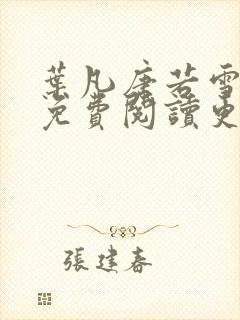 葉凡唐若雪
免費閱讀更
張建春